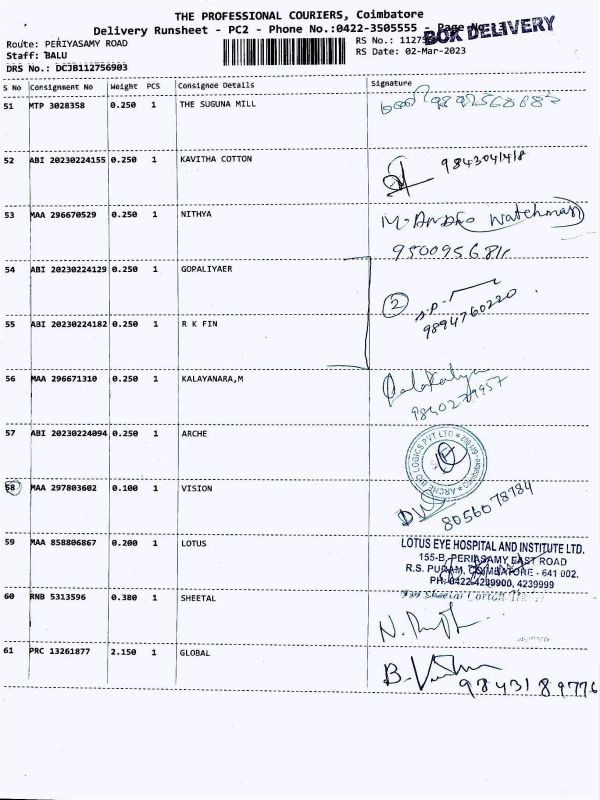 THE PROFESSIONAL COURIERS, Coimbatore
Delivery Runsheet - PC2 - Phone No.:0422-3505555 - Page No.
BOX DELIVERY
Route: PERIYASAMY ROAD
RS No.:
Staff: BALU
RS Date: 02-Mar-2023
DRS No.: DCJB112756903
S No Consignment No Weight PCS Consignee Details Signature
51 MTP 3028358 0.250 1 THE SUGUNA MILL
52 ABI 20230224155 0.250 1 KAVITHA COTTON
9843041418
53 MAA 296670529 0.250 1 NITHYA
Watchman
54 ABI 20230224129 0.250 1 GOPALIYAER
2
9894760220
55 ABI 20230224182 0.250 1 R K FIN
56 MAA 296671310 0.250 1 KALAYANARA,M
57 ABI 20230224094 0.250 1 ARCHE
58 MAA 297803602 0.100 1 VISION
8056078184
59 MAA 858806867 0.200 1 LOTUS
LOTUS EYE HOSPITAL AND INSTITUTE LTD.
155-B, PERIASAMY EAST ROAD
R.S. PURAM, COIMBATORE - 641 002.
PH: 0422-4239900, 4239999
60 RNB 5313596 0.380 1 SHEETAL
61 PRC 13261877 2.150 1 GLOBAL
9843189776